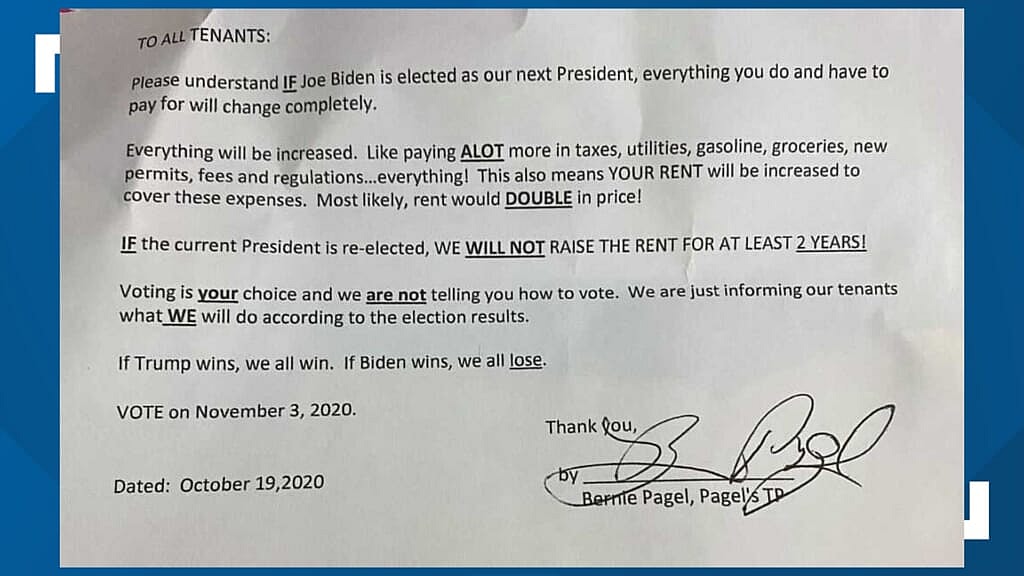 TO ALL TENANTS:
Please understand IF Joe Biden is elected as our next President, everything you do and have to
pay for will change completely.
Everything will be increased.  Like paying ALOT more in taxes, utilities, gasoline, groceries, new
permits, fees and regulations...everything!  This also means YOUR RENT will be increased to
cover these expenses.  Most likely, rent would DOUBLE in price!
IF the current President is re-elected, WE WILL NOT RAISE THE RENT FOR AT LEAST 2 YEARS!
Voting is your choice and we are not telling you how to vote.  We are just informing our tenants
what WE will do according to the election results.
If Trump wins, we all win.  If Biden wins, we all lose.
VOTE on November 3, 2020.
Thank You,
by B Pagel
Bernie Pagel, Pagel's TP
Dated:  October 19,2020